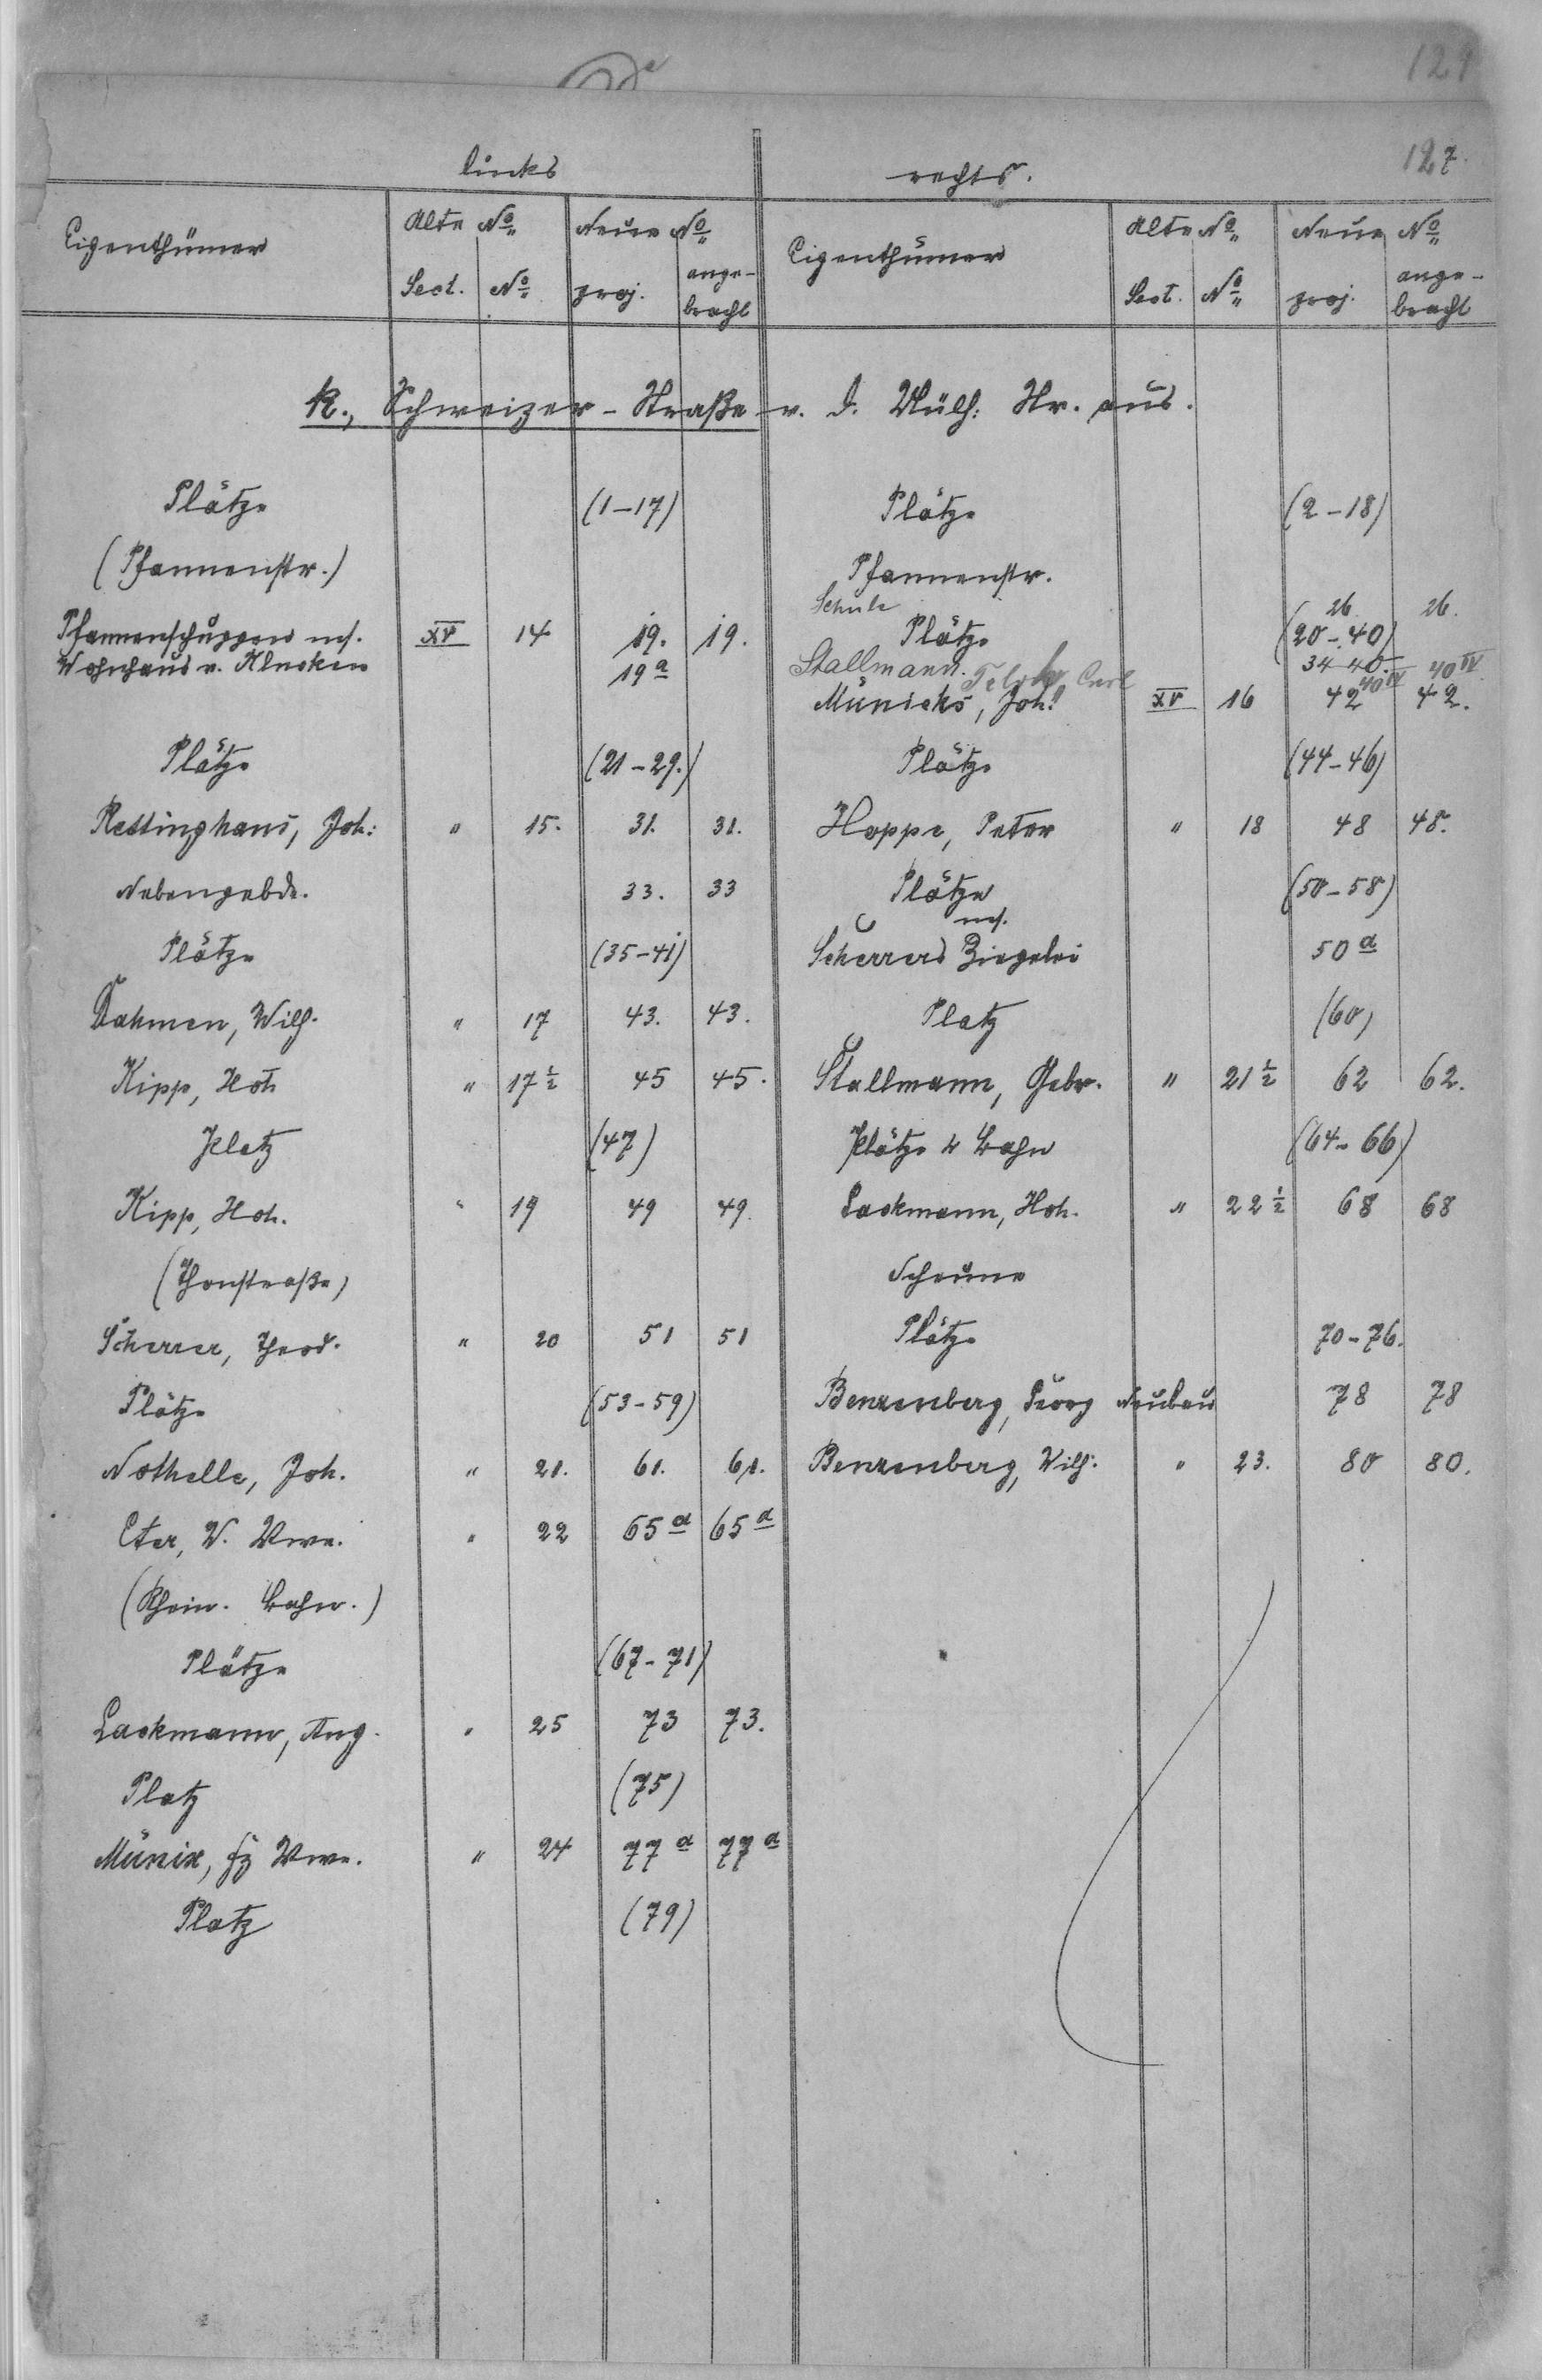 124
127.
links
rechts.
Eigenthümer Alte No. Neue No. Eigenthümer Alte No. Neue No.
Sect. No. proj. ange-bracht Sect. No. proj. ange-bracht
K., Schweizer-Straße v. d. Mülh. Str. aus.
Plätze (1-17) Plätze (2-18)
(Pfannenstr.) Pfannenstr.
Schule 26 26.
Pfannenschuppen mit XV 14 19. 19. Plätze (20-40)
Wohnhaus v. 19a Stallmann. Carl 34-40. 40 IV 40 IV
Münicks, Joh. XV 16 42 42.
Plätze (21-29.) Plätze (44-46)
Rettinghaus, Joh: " 15. 31. 31. Hoppe, Peter " 18 48 48.
Nebengebde. 33. 33 Plätze (50-58)
mit
Plätze (35-41) Scherrers Ziegelei 50a
Dahmen, Wilh. " 17 43. 43. Platz (60)
Kipp, Hch " 17½ 45 45. Stallmann, Gebr. " 21½ 62 62.
Platz (47) Plätze u Bahn (64-66)
Kipp, Hch. " 19 49 49. Lackmann, Hch. " 22½ 68 68
(Thonstraße) Scheune
Scherrer, Theod. " 20 51 51 Plätze 70-76.
Plätze (53-59) Benzenberg, Georg Neubau 78 78
Nothelle, Joh. " 21. 61. 61. Benzenberg, Wilh: " 23. 80 80.
Eter, W. Wwe. " 22 65a 65a
(Rhein. Bahn.)
Plätze (67-71)
Lackmann, Aug. " 25 73 73.
Platz (75)
Münix, Fz Wwe. " 24 77a 77a
Platz (79)